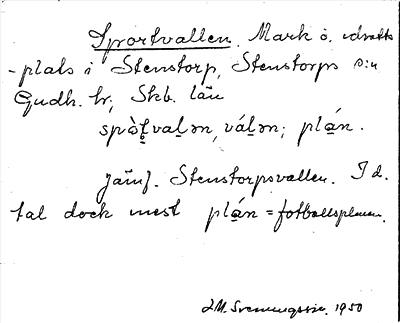 Sportvallen. Mark o. idrotts
-plats i Stenstorp, Stenstorps s:n
Gudh. hr, Skb. län
spòt̬valən, válən; plán.
Jämf. Stenstorpsvallen. I d.
tal dock mest plán = fotbollsplanen.
1950